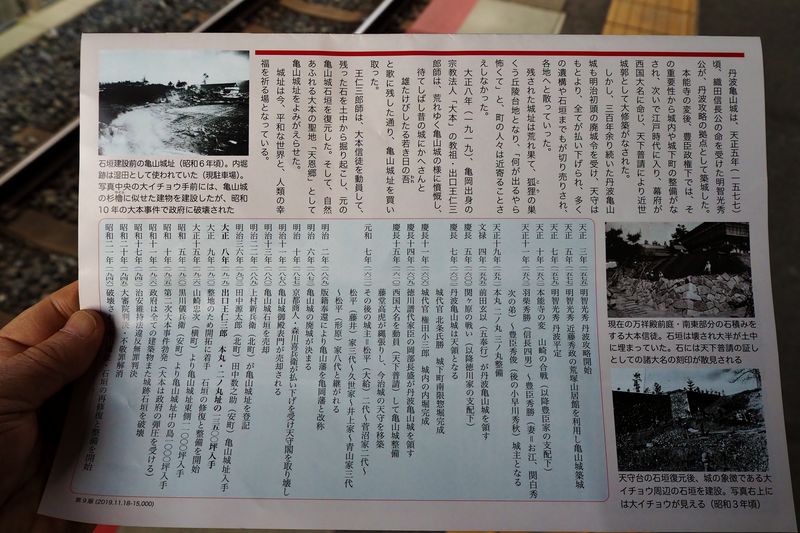 丹波亀山城は、天正五年（一五七七）
頃、織田信長公の命を受けた明智光秀
公が、丹波攻略の拠点として築城した。
本能寺の変後、豊臣政権下では、そ
の重要性から城内や城下町の整備がな
され、次いで江戸時代に入り、幕府が
西国大名に命じ、天下普請により近世
城郭として大修築がなされた。
しかし、三百年余り続いた丹波亀山
城も明治初頭の廃城令を受け、天守は
もとより、全てが払い下げられ、多く
の遺構や石垣までもが切り売りされ、
各地へと散っていった。
残された城址は荒れ果て、狐狸の巣
くう丘陵台地となり、「何が出るやら
怖くて」と、町の人々は近寄ることさ
えしなかった。
大正八年（一九一九）、亀岡出身の
宗教法人「大本」の教祖・出口王仁三
郎師は、荒れゆく亀山城の様に憤慨し、
待てしばし昔の城にかへさんと
雄たけびしたる若き日の吾
と歌に残した通り、亀山城址を買い
取った。
王仁三郎師は、大本信徒を動員して、
残った石を土中から掘り起こし、元の
亀山城石垣を復元した。そして、自然
あふれる大本の聖地「天恩郷」として
亀山城址をよみがえらせた。
城址は今、平和な世界と、人類の幸
福を祈る場となっている。
石垣建設前の亀山城址（昭和6年頃）。内堀
跡は湿田として使われていた（現駐車場）。
写真中央の大イチョウ手前には、亀山城
の杉櫓に似せた建物を建設したが、昭和
10年の大本事件で政府に破壊された
現在の万祥殿前庭・南東部分の石積みを
する大本信徒。石垣は壊され大半が土中
に埋まっていた。石には天下普請の証し
としての諸大名の刻印が散見される
天守台の石垣復元後、城の象徴である大
イチョウ周辺の石垣を建設。写真右上に
は大イチョウが見える（昭和3年頃）
天正三年 明智光秀 丹波攻略開始
天正五年 明智光秀 近衛秀政の荒塚山居館を利用し亀山城築城
天正七年 明智光秀 丹波平定
天正十年 本能寺の変 山崎の合戦（以降豊臣家の支配下）
天正十一年 羽柴秀勝（信長四男）～豊臣秀勝（妻＝お江、関白秀
次の弟）～豊臣秀俊（後の小早川秀秋）城主となる
天正十九年 本丸・二ノ丸・三ノ丸整備
文禄 四年 前田玄以（五奉行）が丹波亀山城を領す
慶長 五年 関ヶ原の戦い（以降徳川家の支配下）
慶長 七年 丹波亀山城は天領となる
城代官 北条氏勝 城下町南限惣堀完成
慶長十一年 城代官 権田小三郎 城内の内堀完成
慶長十四年 徳川譜代家臣の岡部長盛が丹波亀山城を領す
慶長十五年 西国大名を動員（天下普請）して亀山城整備
藤堂高虎が縄張りし、今治城の天守を移築
元和 七年 その後の城主＝松平（大給）二代～菅沼家二代～
松平（藤井）家三代～久世家～井上家～青山家三代
～松平（形原）家八代と継がれる
明治 二年 版籍奉還により亀山藩を亀岡藩と改称
明治 六年 亀山城の廃城が決まる
明治 十年 京都商人・森川善兵衛が払い下げを受け天守閣を取り壊し
明治十一年 亀山城御殿表門が売却される
明治十三年 亀山城石垣を売却
明治二二年 上村新兵衛（北町）が亀山城址を登記
明治三六年 田中源太郎（北町）、田中数之助（安町）亀山城址入手
大正 八年 出口王仁三郎 本丸・二ノ丸址の一三五〇〇坪入手
大正 九年 整地のため開拓に着手 石垣の修復と整備を開始
大正十五年 山崎忠次（横町）より亀山城址東側一〇〇〇坪入手
昭和 五年 黒川儀兵衛（安町）より亀山城址中の島一〇〇〇坪入手
昭和 十年 第二次大本事件勃発（大本は政府の弾圧を受ける）
昭和十一年 政府は全ての建築物また城跡石垣を破壊
昭和十七年 治安維持法違反無罪判決
昭和二十年 大審院判決で不敬罪解消
第9版（2019.11.18-15,000）